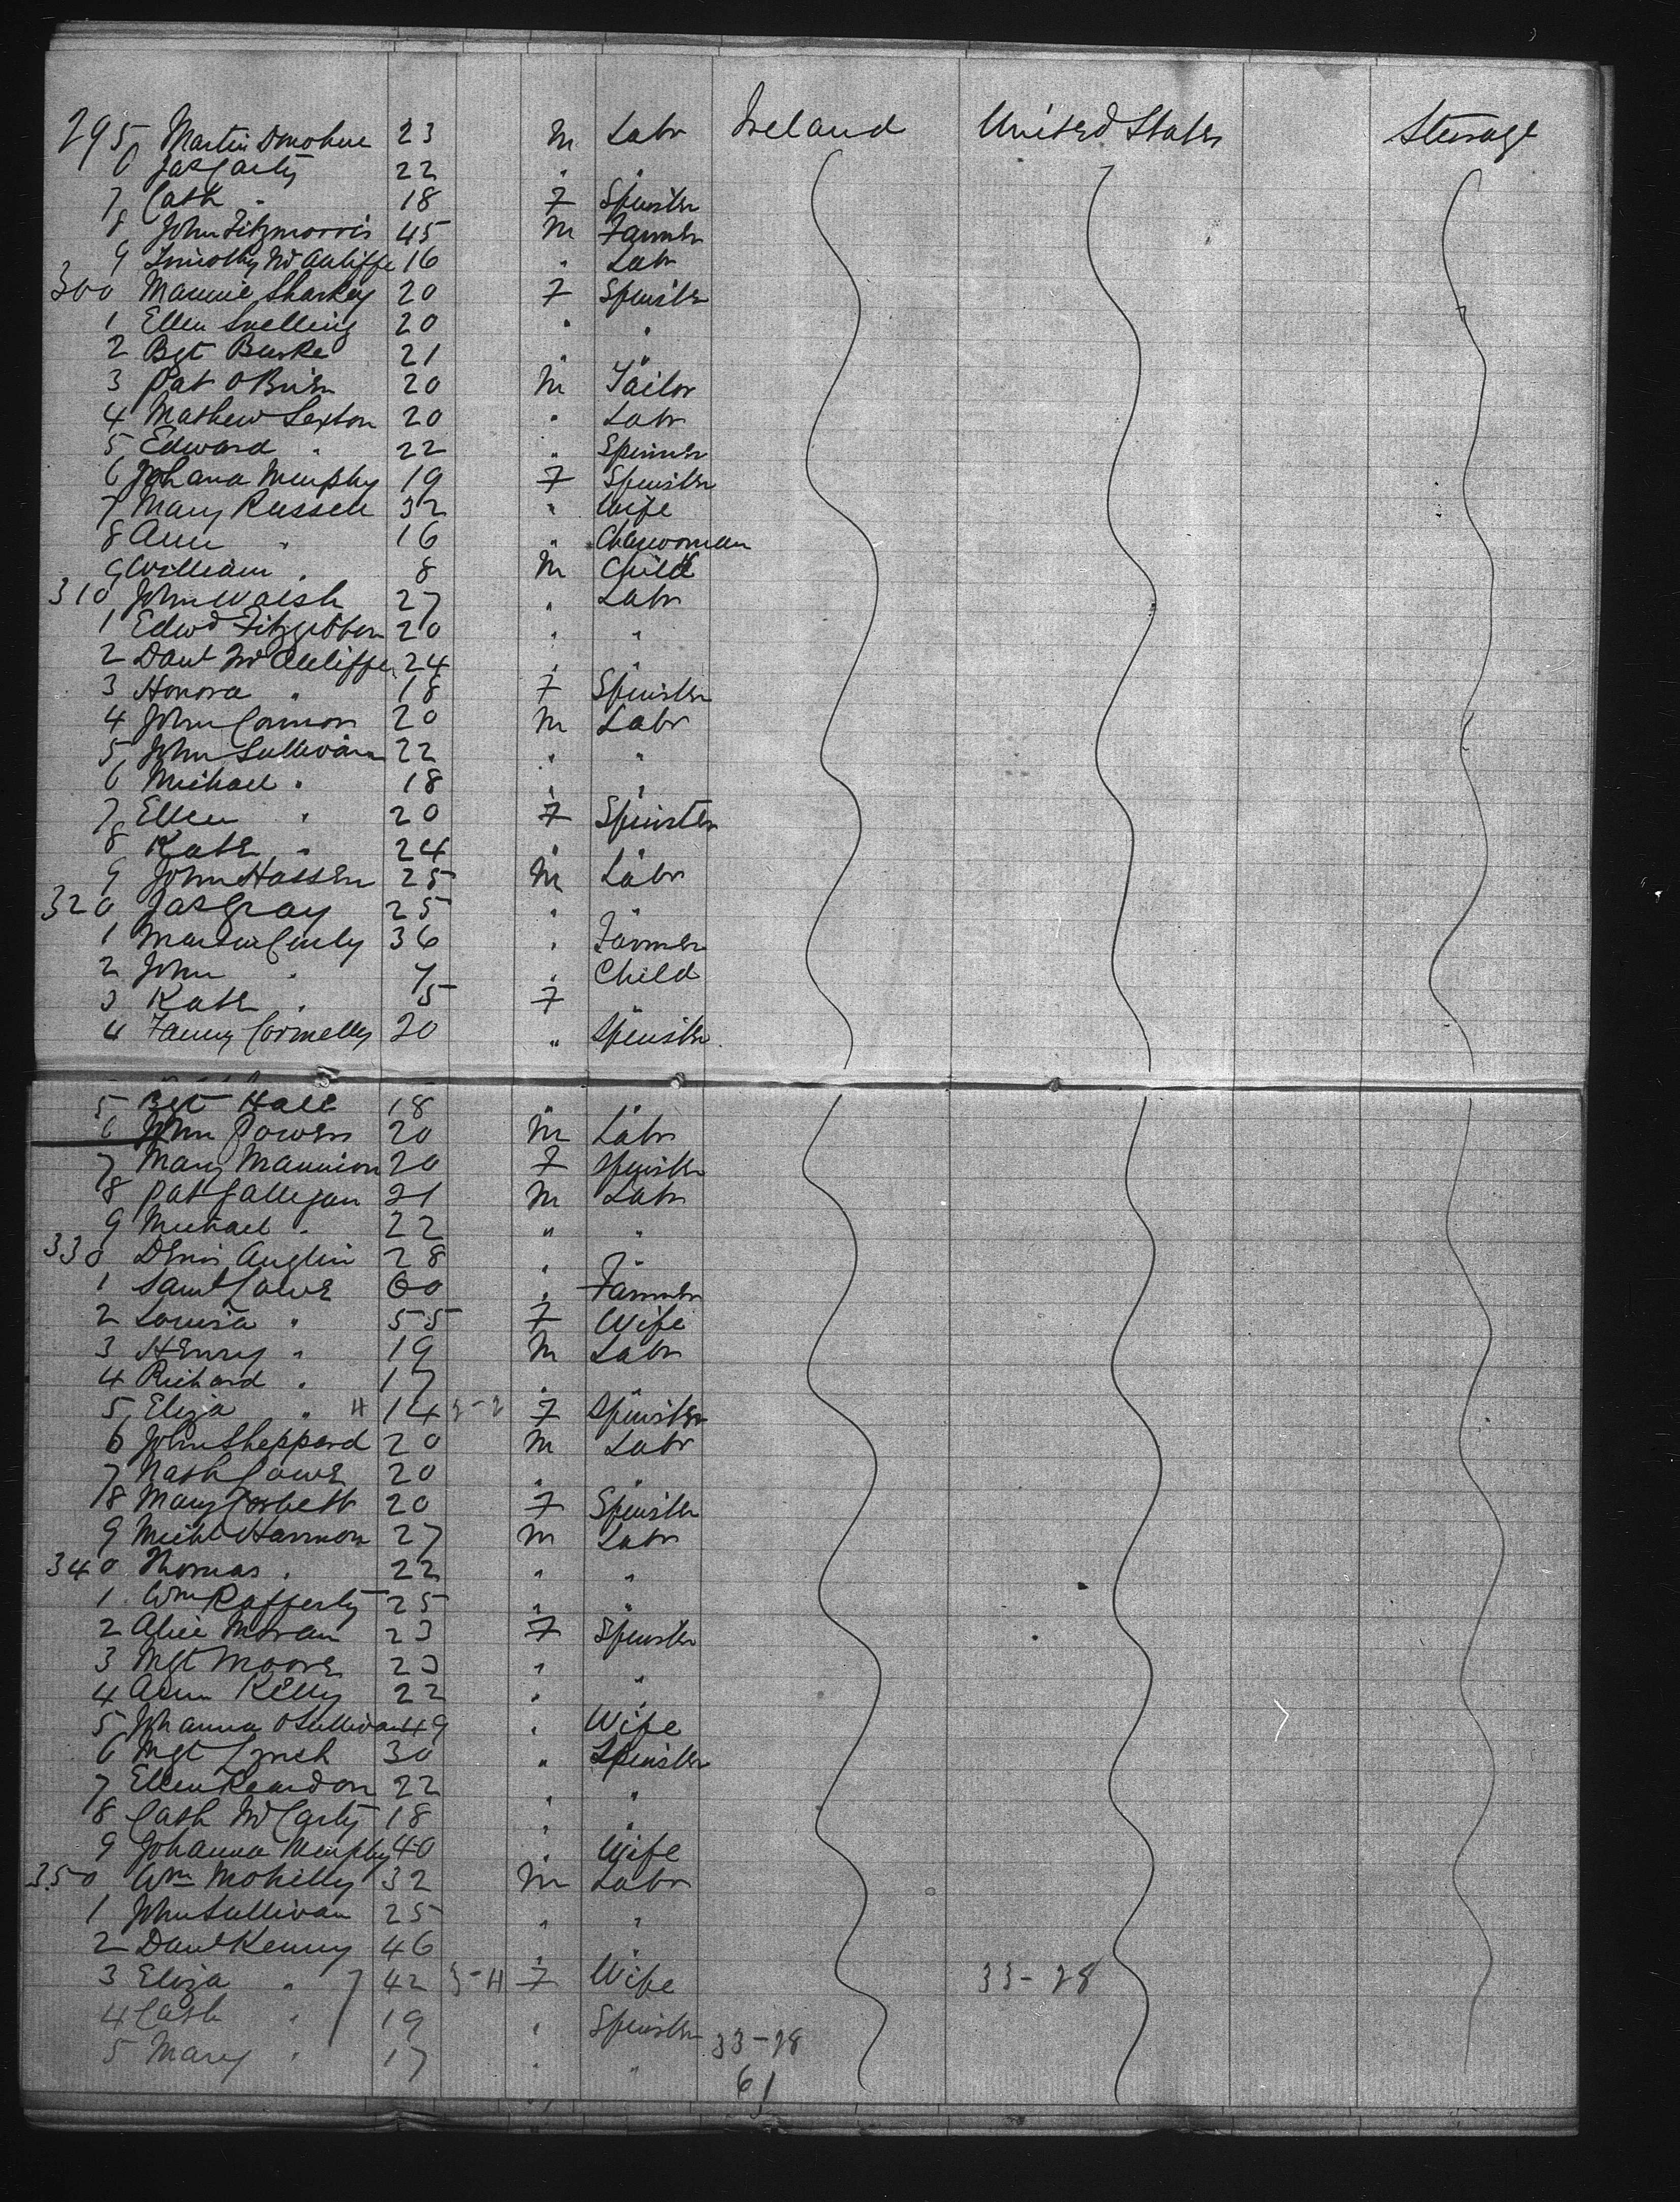 295 Martin Donohue 23 M Labr Ireland United States Steerage
6 Jas Carty 22 " "
7 Cath " 18 F Spinster
8 John Fitzmorris 45 M Farmer
9 Timothy McAuliffe 16 " Labr
300 Mamie Sharkey 20 F Spinster
1 Ellen Snelling 20 " "
2 Bgt Burke 21 " "
3 Pat O'Brien 20 M Tailor
4 Mathew Sexton 20 " Labr
5 Edward " 22 " Spinner
6 Johana Murphy 19 F Spinster
7 Mary Russell 32 " Wife
8 Ann " 16 " Charwoman
9 William " 8 M Child
310 John Walsh 27 " Labr
1 Edwd Fitzgibbon 20 " "
2 Danl McAuliffe 24 " "
3 Honora " 18 F Spinster
4 John Connors 20 M Labr
5 John Sullivan 22 " "
6 Michael " 18 " "
7 Ellen " 20 F Spinster
8 Kate " 24 " "
9 John Hassen 25 M Labr
320 Jas Gray 25 " "
1 Martin Curly 36 " Farmer
2 John " 7 " Child
3 Kate " 5 F "
4 Fanny Connelly 20 " Spinster
5 Bgt Hall 18 " "
6 John Powers 20 M Labr
7 Mary Mannion 20 F Spinster
8 Pat Galligan 21 M Labr
9 Michael " 22 " "
330 Denis Anglin 28 " "
1 Saml Cowe 60 " Farmer
2 Louisa " 55 F Wife
3 Henry " 19 M Labr
4 Richard " 17 " "
5 Eliza " 14 F Spinster
6 John Sheppard 20 M Labr
7 Nath Cowe 20 " "
8 Mary Corbett 20 F Spinster
9 Michl Hannon 27 M Labr
340 Thomas " 22 " "
1 Wm Rafferty 25 " "
2 Alice Moran 23 F Spinster
3 Mgt Moore 23 " "
4 Ann Kelly 22 " "
5 Johanna O'Sullivan 49 " Wife
6 Mgt Lynch 30 " Spinster
7 Ellen Reardon 22 " "
8 Cath McCarty 18 " "
9 Johanna Murphy 40 " Wife
350 Wm Mokilly 32 M Labr
1 John Sullivan 25 " "
2 Danl Kenny 46 " "
3 Eliza " 42 F Wife 33-28
4 Cath " 19 " Spinster
5 Mary " 17 " " 33-28
61